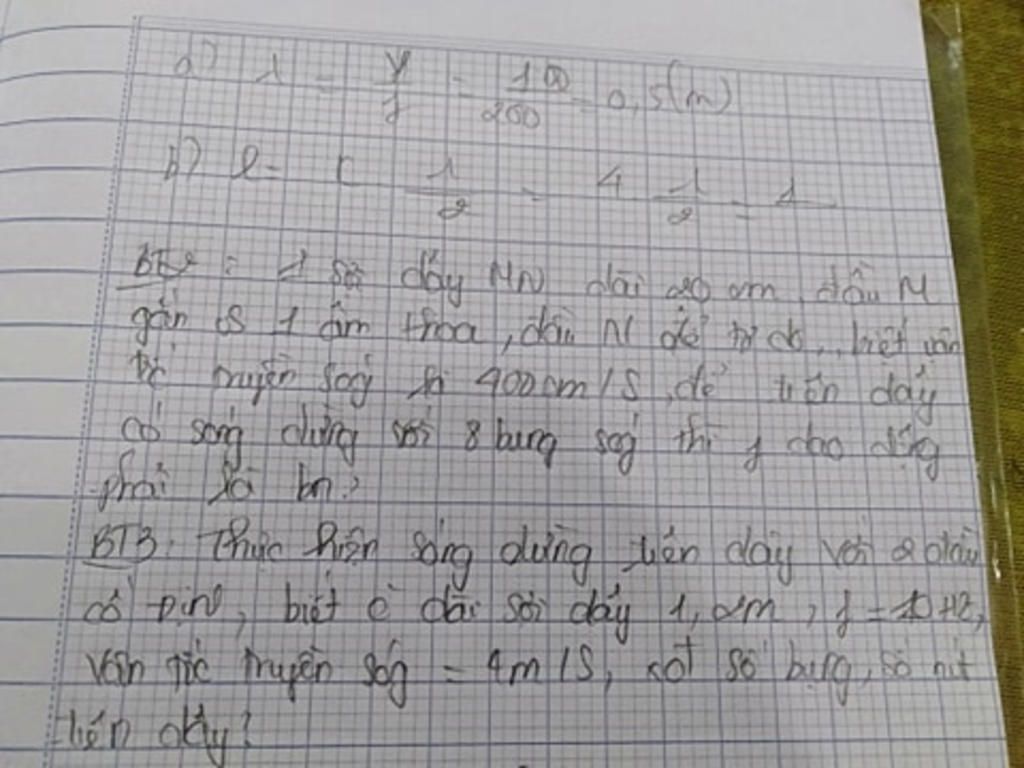 a) λ = v/f = 100/200 = 0,5(m)
b) l = k λ/2 = 4 λ/2 = 1
BT2 : 1 sợi dây MN dài cm, đầu M
gắn s 1 âm thoa, đầu N để tự do, biết vận
tốc truyền sog là 400 cm/s, để trên dây
có sóng dừng với 8 bụng sog thì f dao động
phải là bn?
BT3: Thực hiện sóng dừng trên dây với 2 đầu
cố định, biết c dài sợi dây 1,2m, f = 10 Hz,
vận tốc truyền sóg = 4m/s, số bụng, số nút
trên dây?